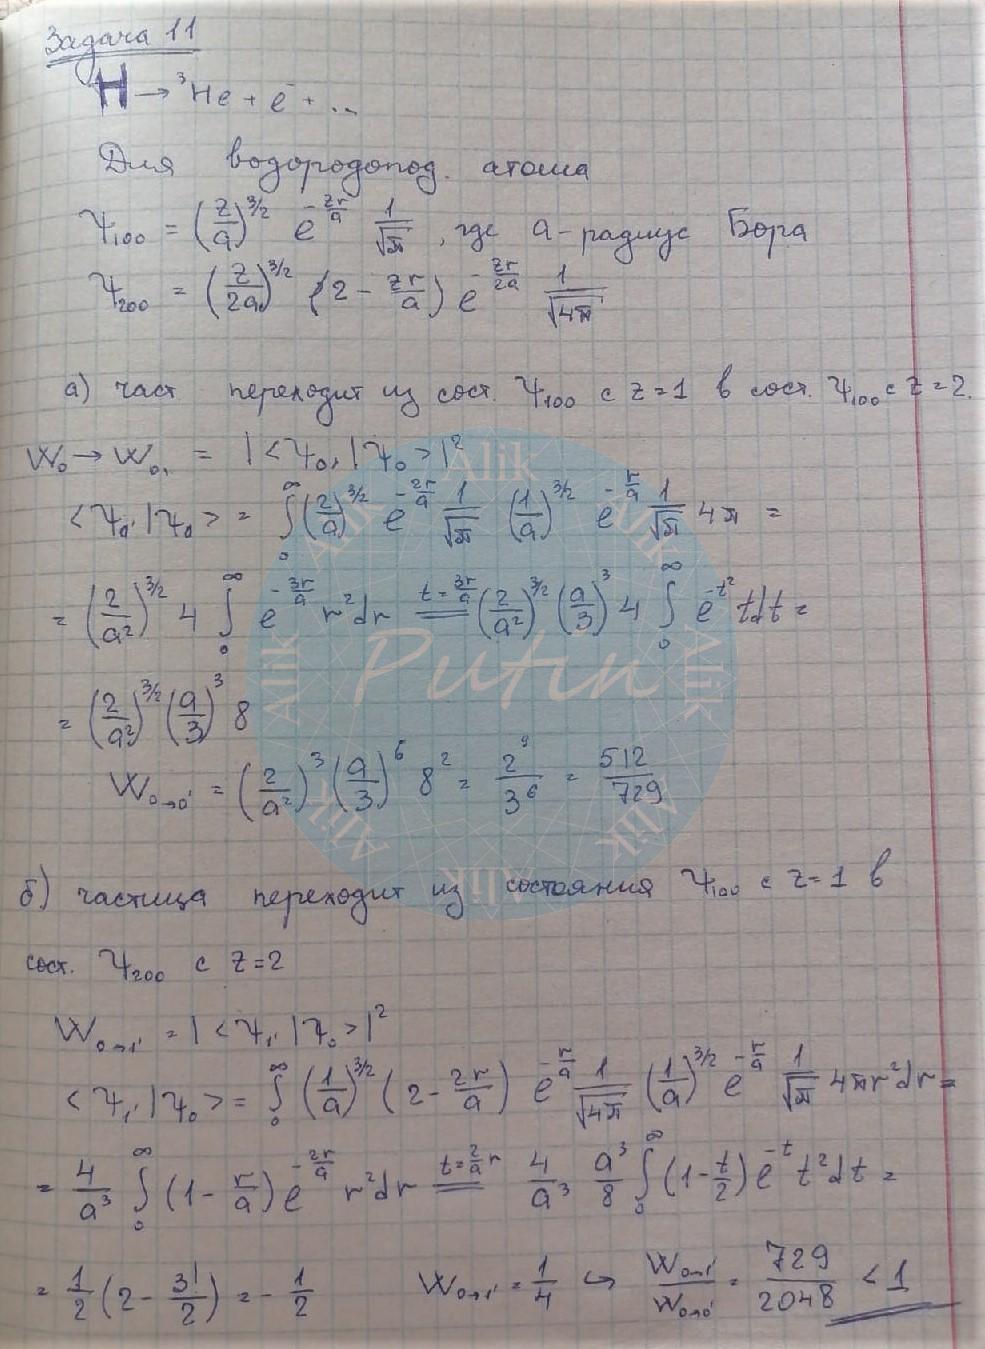 Задача 11
H → ³He + e⁻ + ...
Для водородопод. атома
Ψ₁₀₀ = (z/a)^{3/2} e^{-zr/a} 1/√π , где a - радиус Бора
Ψ₂₀₀ = (z/2a)^{3/2} (2 - zr/a) e^{-zr/2a} 1/√4π
а) част переходит из сост. Ψ₁₀₀ с z=1 в сост. Ψ₁₀₀ с z=2.
W₀ → W₀, = |<Ψ₀,|Ψ₀>|²
<Ψ₀'|Ψ₀> = ∫₀^∞ (2/a)^{3/2} e^{-2r/a} 1/√π (1/a)^{3/2} e^{-r/a} 1/√π 4π =
= (2/a²)^{3/2} 4 ∫₀^∞ e^{-3r/a} r²dr = t=3r/a (2/a²)^{3/2} (a/3)³ 4 ∫₀^∞ e^{-t²} t dt =
= (2/a²)^{3/2} (a/3)³ 8
W₀→₀' = (2/a²)³ (a/3)⁶ 8² = 2⁹/3⁶ = 512/729
б) частица переходит из состояния Ψ₁₀₀ с z=1 в
сост. Ψ₂₀₀ с z=2
W₀→₁' = |<Ψ₁'|Ψ₀>|²
<Ψ₁'|Ψ₀> = ∫₀^∞ (1/a)^{3/2} (2 - 2r/a) e^{-r/a} 1/√4π (1/a)^{3/2} e^{-r/a} 1/√π 4πr²dr =
= 4/a³ ∫₀^∞ (1 - r/a) e^{-2r/a} r²dr = t=2/a r 4/a³ a³/8 ∫₀^∞ (1 - t/2) e^{-t} t²dt =
= 1/2 (2 - 3!/2) = - 1/2 W₀→₁' = 1/4 ↪ W₀→₁'/W₀→₀' = 729/2048 < 1
Alik
Alik
Alik
Alik
Alik
Alik
Alik
Alik
Putin